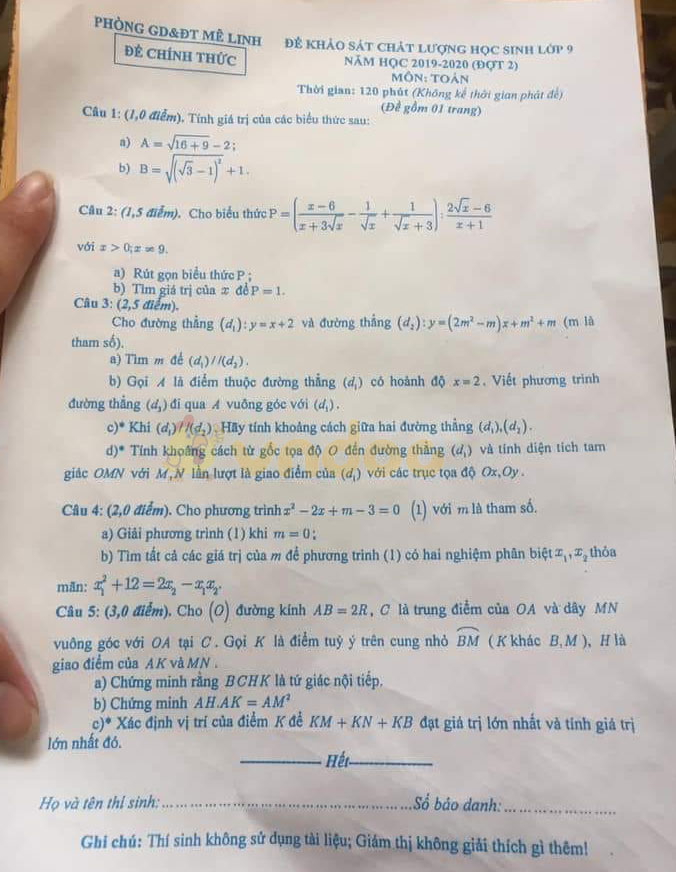 PHÒNG GD&ĐT MÊ LINH
ĐỀ CHÍNH THỨC
ĐỀ KHẢO SÁT CHẤT LƯỢNG HỌC SINH LỚP 9
NĂM HỌC 2019-2020 (ĐỢT 2)
MÔN: TOÁN
Thời gian: 120 phút (Không kể thời gian phát đề)
(Đề gồm 01 trang)
Câu 1: (1,0 điểm). Tính giá trị của các biểu thức sau:
a) A = √(16 + 9) − 2;
b) B = √((√3 − 1)²) + 1.
Câu 2: (1,5 điểm). Cho biểu thức P = ((x − 6)/(x + 3√x) − 1/√x + 1/(√x + 3)) : (2√x − 6)/(x + 1)
với x > 0; x ≠ 9.
a) Rút gọn biểu thức P ;
b) Tìm giá trị của x để P = 1.
Câu 3: (2,5 điểm).
Cho đường thẳng (d₁): y = x + 2 và đường thẳng (d₂): y = (2m² − m)x + m² + m (m là
tham số).
a) Tìm m để (d₁) // (d₂).
b) Gọi A là điểm thuộc đường thẳng (d₁) có hoành độ x = 2. Viết phương trình
đường thẳng (d₃) đi qua A vuông góc với (d₁).
c)* Khi (d₁) // (d₂). Hãy tính khoảng cách giữa hai đường thẳng (d₁),(d₂).
d)* Tính khoảng cách từ gốc tọa độ O đến đường thẳng (d₁) và tính diện tích tam
giác OMN với M,N lần lượt là giao điểm của (d₁) với các trục tọa độ Ox,Oy.
Câu 4: (2,0 điểm). Cho phương trình x² − 2x + m − 3 = 0 (1) với m là tham số.
a) Giải phương trình (1) khi m = 0;
b) Tìm tất cả các giá trị của m để phương trình (1) có hai nghiệm phân biệt x₁, x₂ thỏa
mãn: x₁² + 12 = 2x₂ − x₁x₂.
Câu 5: (3,0 điểm). Cho (O) đường kính AB = 2R, C là trung điểm của OA và dây MN
vuông góc với OA tại C. Gọi K là điểm tuỳ ý trên cung nhỏ BM (K khác B,M), H là
giao điểm của AK và MN.
a) Chứng minh rằng BCHK là tứ giác nội tiếp.
b) Chứng minh AH.AK = AM²
c)* Xác định vị trí của điểm K để KM + KN + KB đạt giá trị lớn nhất và tính giá trị
lớn nhất đó.
Hết
Họ và tên thí sinh:..........Số báo danh:..........
Ghi chú: Thí sinh không sử dụng tài liệu; Giám thị không giải thích gì thêm!